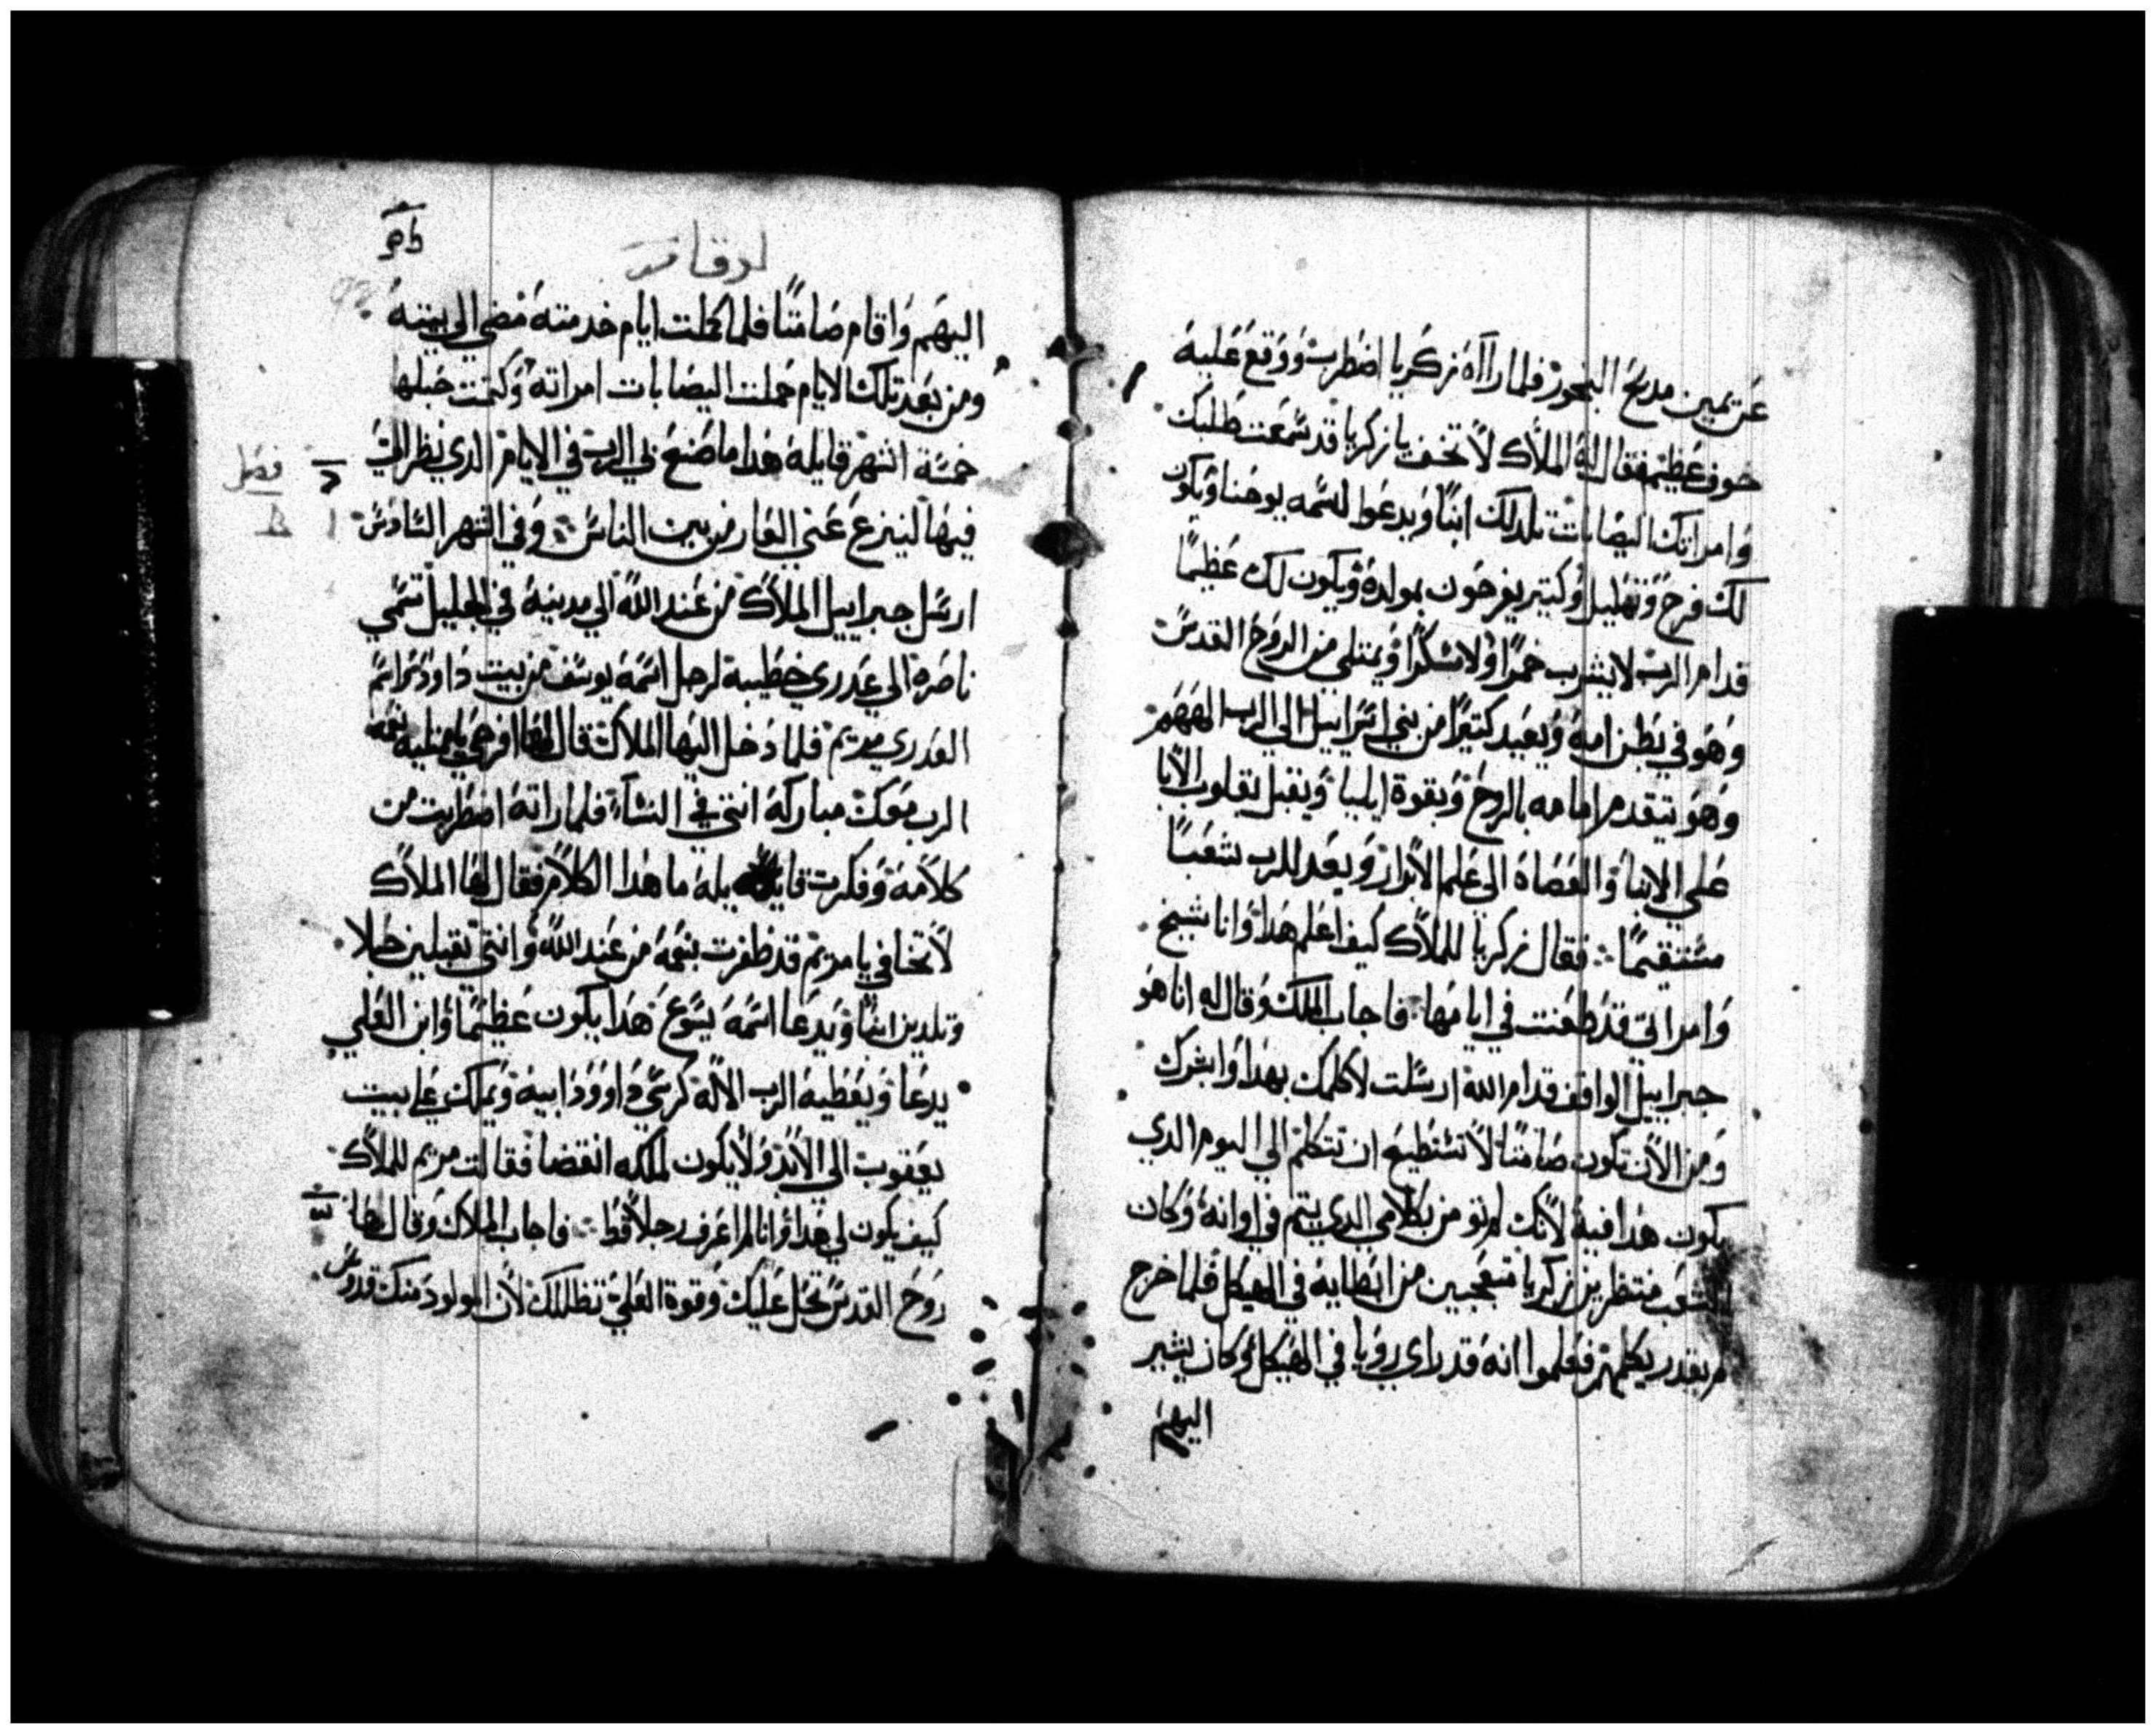 عن يمين مدبح البخور فلما رااه زكريا اضطرب ووقع عليه
خوف عظيم فقال له الملاك لا تخف يا زكريا قد سمعت طلبتك
وامراتك اليصابات تلد لك ابنا ويدعوا اسمه يوحنا ويكون
لك فرح وتهليل وكتير يفرحون بمولده ويكون لك عظيما
قدام الرب لا يشرب خمرا ولا سكرا ويمتلي من الروح القدس
وهو في بطن امه ويعيد كتيرا من بني اسراييل الى الرب الههم
وهو يتقدم امامه بالروح وبقوة ايليا ويقبل بقلوب الابا
على الابنا والعصاة الى علم الابرار ويعد للرب شعبا
مستقيما فقال زكريا للملاك كيف اعلم هدا وانا شيخ
وامراتي قد طعنت في ايامها فاجاب الملك وقال له انا هو
جبراييل الواقف قدام الله ارسلت لاكلمك بهدا وابشرك
ومن الان تكون صامتا لا تستطيع ان تتكلم الى اليوم الدي
يكون هدا فيه لانك لم تومن بكلامي الدي يتم في اوانه وكان
الشعب منتظرين زكريا متعجبين من ابطايه في الهيكل فلما خرج
لم يقدر يكلمهم فعلموا انه قد راى رويا في الهيكل وكان يشير
اليهم
لوقا
اليهم واقام صامتا فلما كملت ايام خدمته مضى الى بيته
ومن بعد تلك الايام حملت اليصابات امراته وكتمت حبلها
خمسة اشهر قايله هدا ما صنع بي الرب في الايام الدي نظر الي
فصل
فيها لينزع عني العار من بين الناس وفي الشهر السادس
ارسل جبراييل الملاك من عند الله الى مدينة في الجليل تسمي
ناصرة الى عدري خطيبه لرجل اسمه يوسف من بيت داود واسم
العدري مريم فلما دخل اليها الملاك قال لها افرحي يا ممتليه نعمه
الرب معك مباركة انتي في النسآء فلما راته اضطربت من
كلامه وفكرت قايله ما هدا الكلام فقال لها الملاك
لا تخافي يا مريم قد ظفرت بنعمة من عند الله وانتي تقبلين حبلا
وتلدين ابنا ويدعا اسمه يسوع هدا يكون عظيما وابن العلي
يدعا ويعطيه الرب الاله كرسي داوود ابيه ويملك على بيت
يعقوب الى الابد ولا يكون لملكه انقضا فقالت مريم للملاك
كيف يكون لي هدا وانا لم اعرف رجلا قط فاجاب الملاك وقال لها
روح القدس تحل عليك وقوة العلي تظللك لان المولود منك قدوس